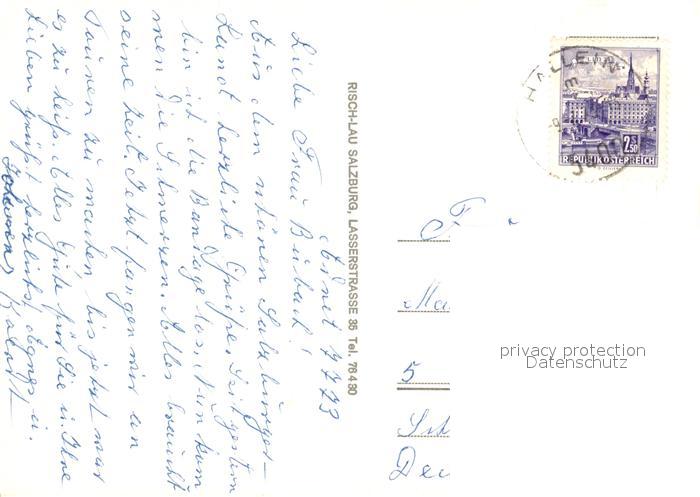 Adnet 4.7.73
Liebe Frau Buback!
Aus dem schönen Salzburger-
Land herzliche Grüße. Seit gestern
bin ich die Bandage los. Nun kom
men die Schmerzen. Alles braucht
seine Zeit. Jetzt fangen wir an
Touren zu machen bis jetzt war
es zu heiß. Alles Gute für Sie u. Ihre
Lieben grüßt herzlichst Agnes u.
RISCH-LAU SALZBURG, LASSERSTRASSE 36 Tel. 76 4 80
HALLEIN
2S50
REPUBLIK ÖSTERREICH
F
Ma
5
Sch
Deu
privacy protection
Datenschutz